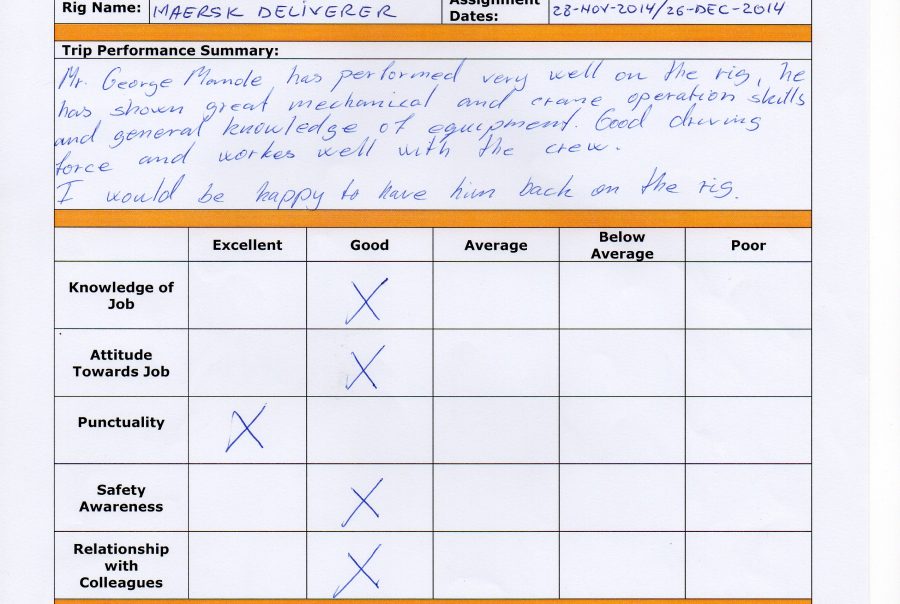 Rig Name: MAERSK DELIVERER Assignment
Dates: 28-NOV-2014/26-DEC-2014
Trip Performance Summary:
Mr. George Mande has performed very well on the rig, he
has shown great mechanical and crane operation skills
and general knowledge of equipment. Good driving
force and workes well with the crew.
I would be happy to have him back on the rig.
Excellent Good Average Below Average Poor
Knowledge of
Job X
Attitude
Towards Job X
Punctuality X
Safety
Awareness X
Relationship
with
Colleagues X